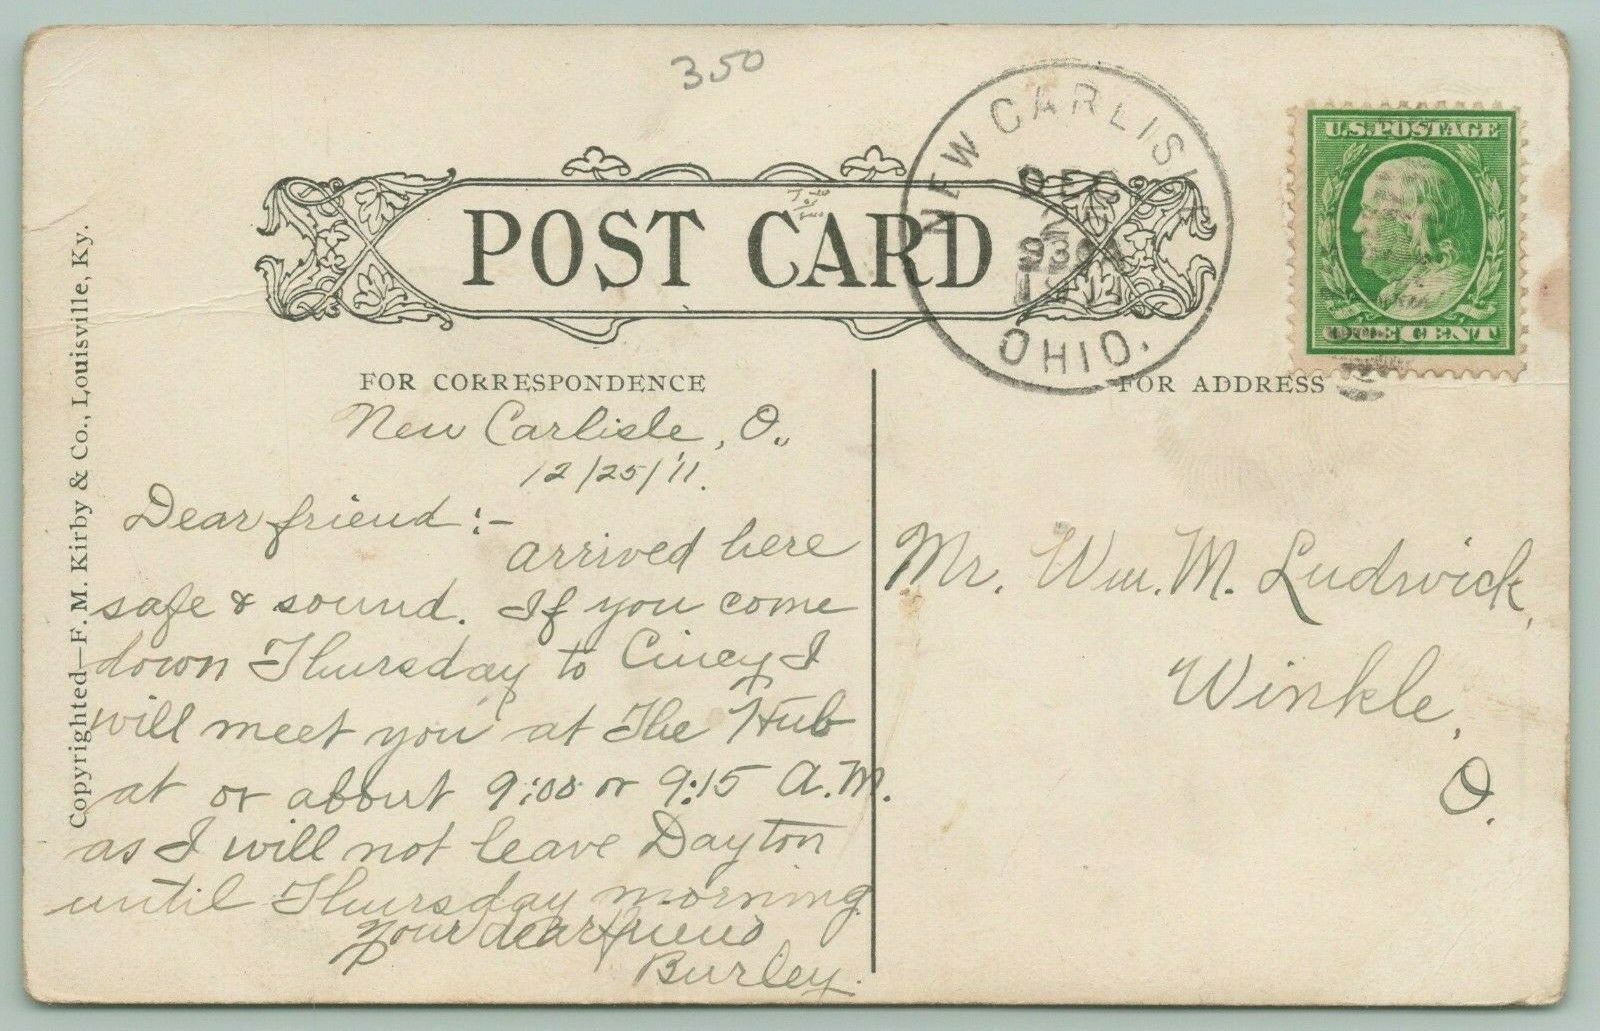 350
NEW CARLISLE
OHIO.
U.S. POSTAGE
ONE CENT
POST CARD
FOR CORRESPONDENCE
FOR ADDRESS
New Carlisle, O.,
12/25/'11.
Dear friend :-
arrived here
safe & sound. If you come
down Thursday to Cincy I
will meet you at The Hub
at or about 9:00 or 9:15 A.M.
as I will not leave Dayton
until Thursday morning
Your dear friend
Burley.
Mr. Wm. M. Ludwick,
Winkle,
O.
Copyrighted—F. M. Kirby & Co., Louisville, Ky.